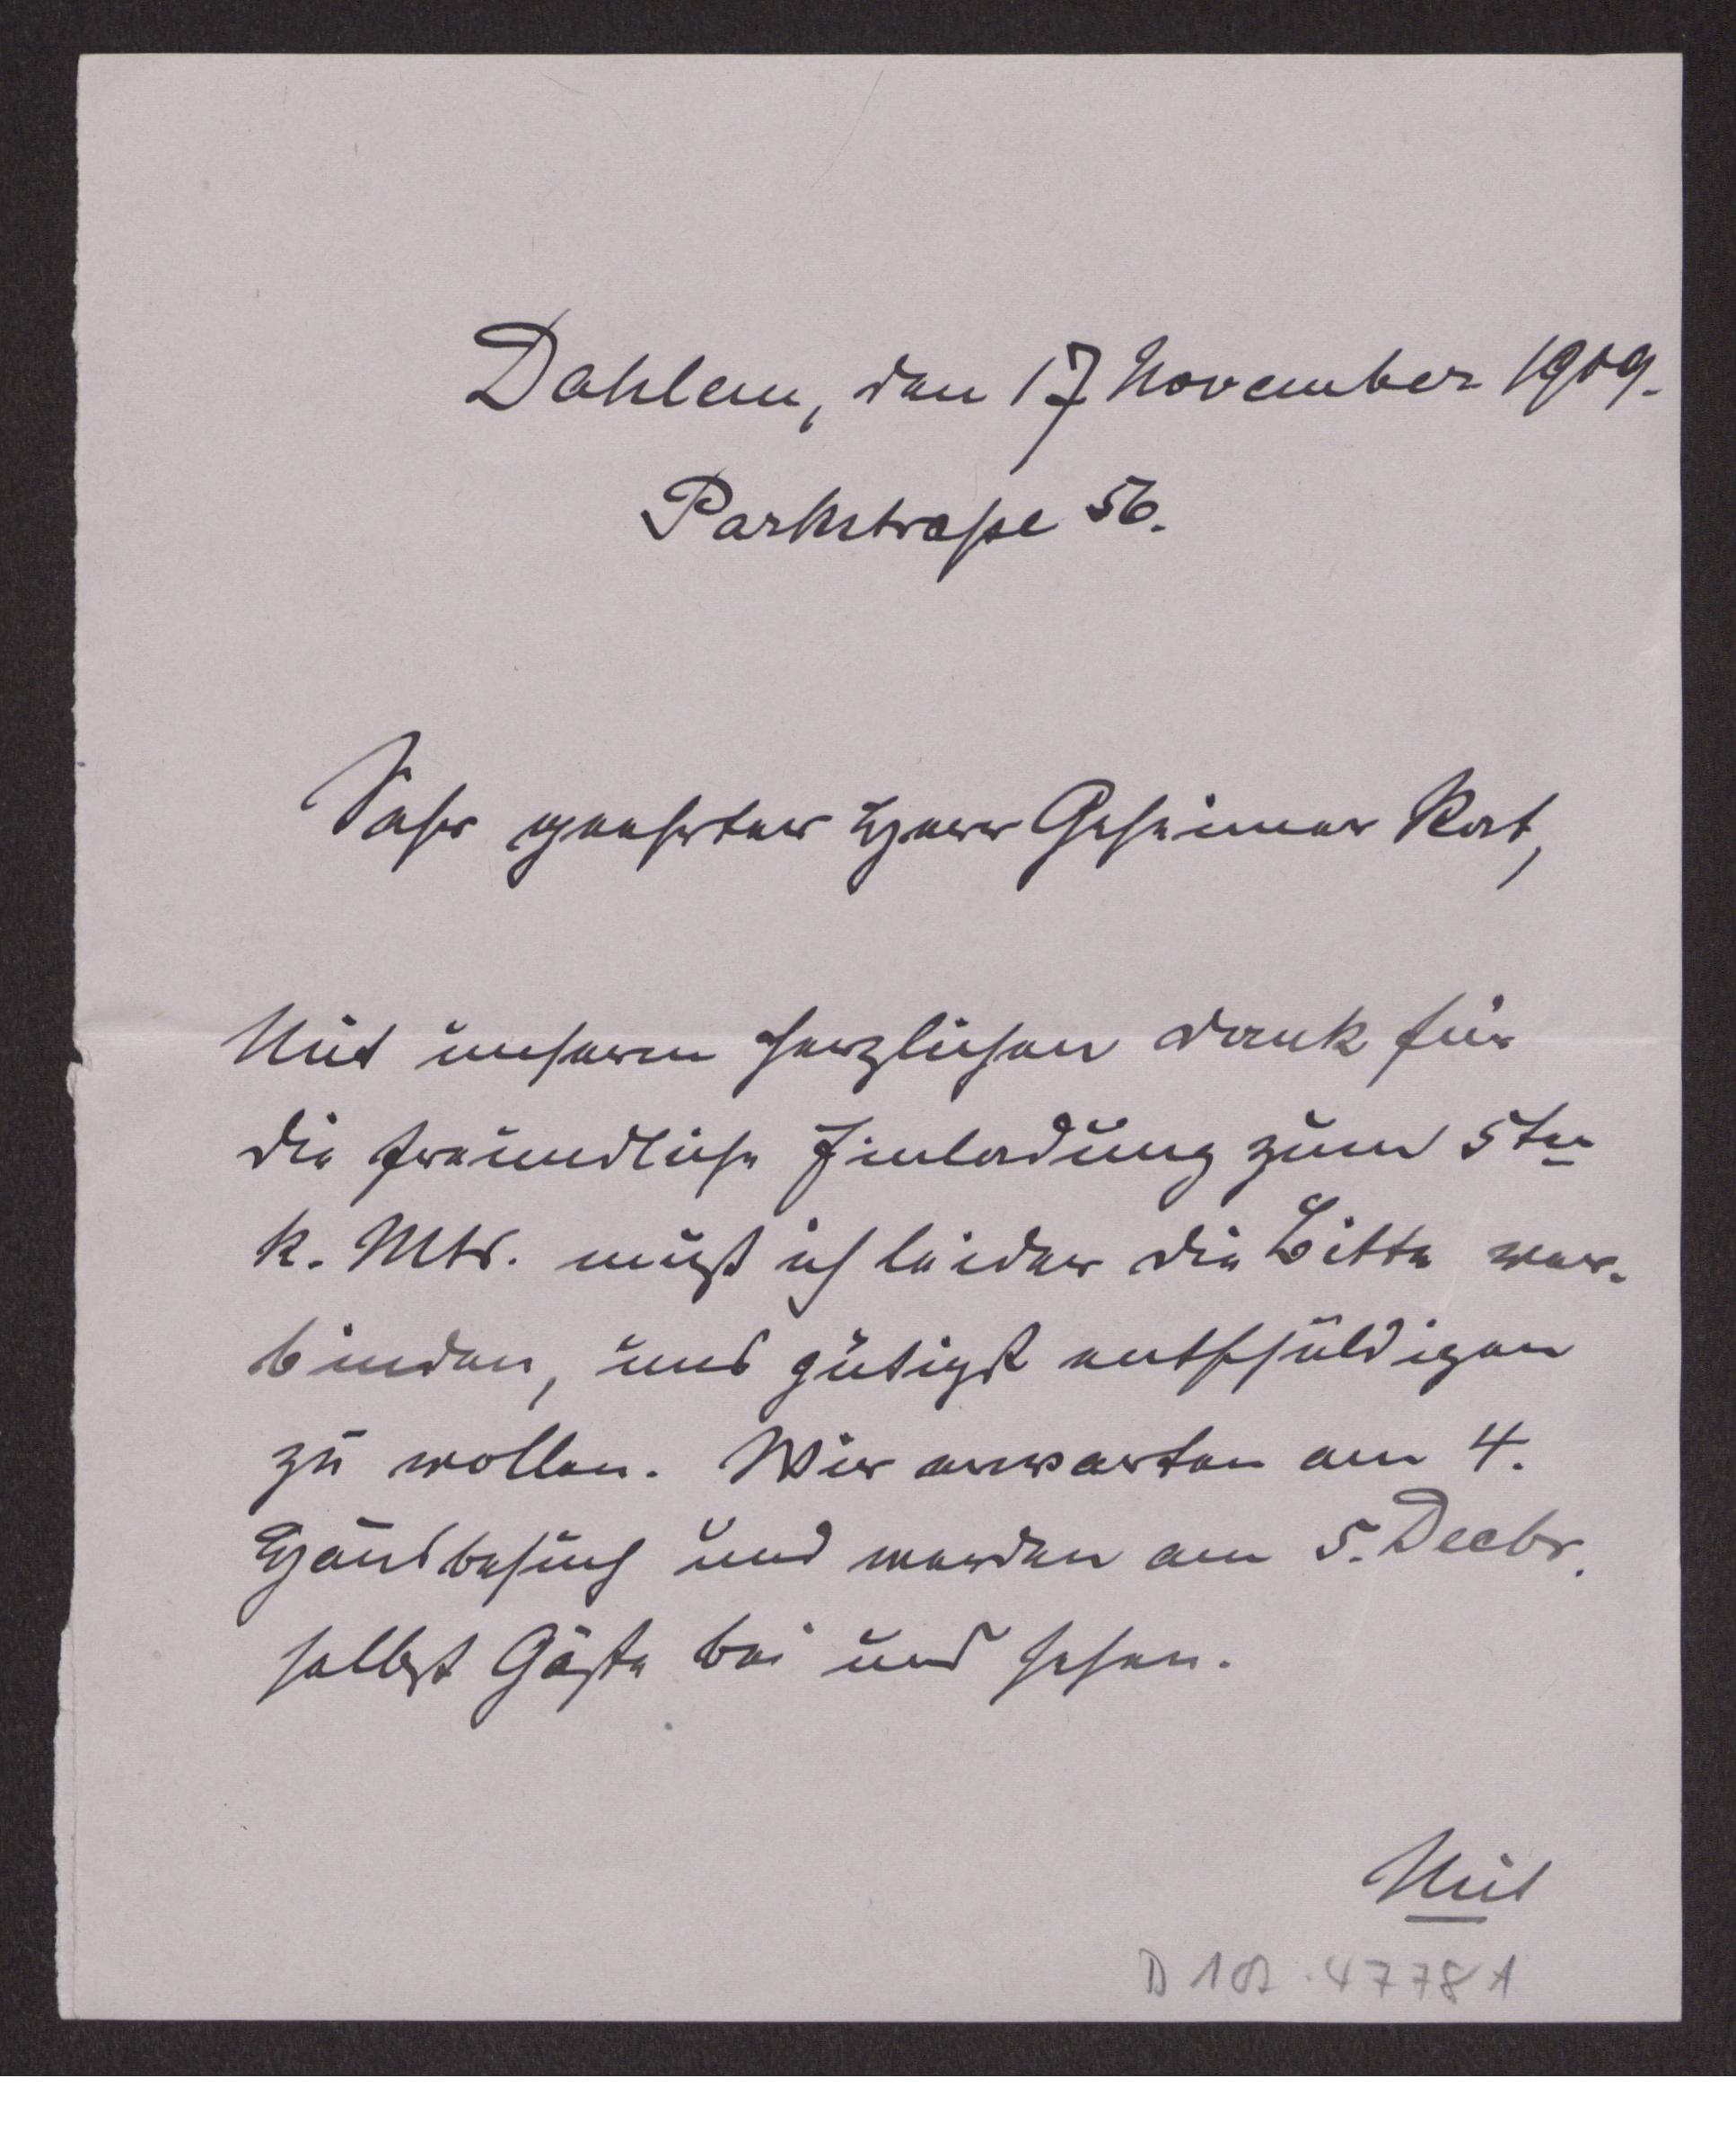 Dahlem, den 17 November 1909.
Parkstraße 56.
Sehr geehrter Herr Geheimer Rat,
Mit unserem herzlichen Dank für
die freundliche Einladung zum 5ten
k. Mts. muß ich leider die Bitte ver-
binden, uns gütigst entschuldigen
zu wollen. Wir erwarten am 4.
Hausbesuch und werden am 5. Decbr.
selbst Gäste bei uns sehen.
Mit